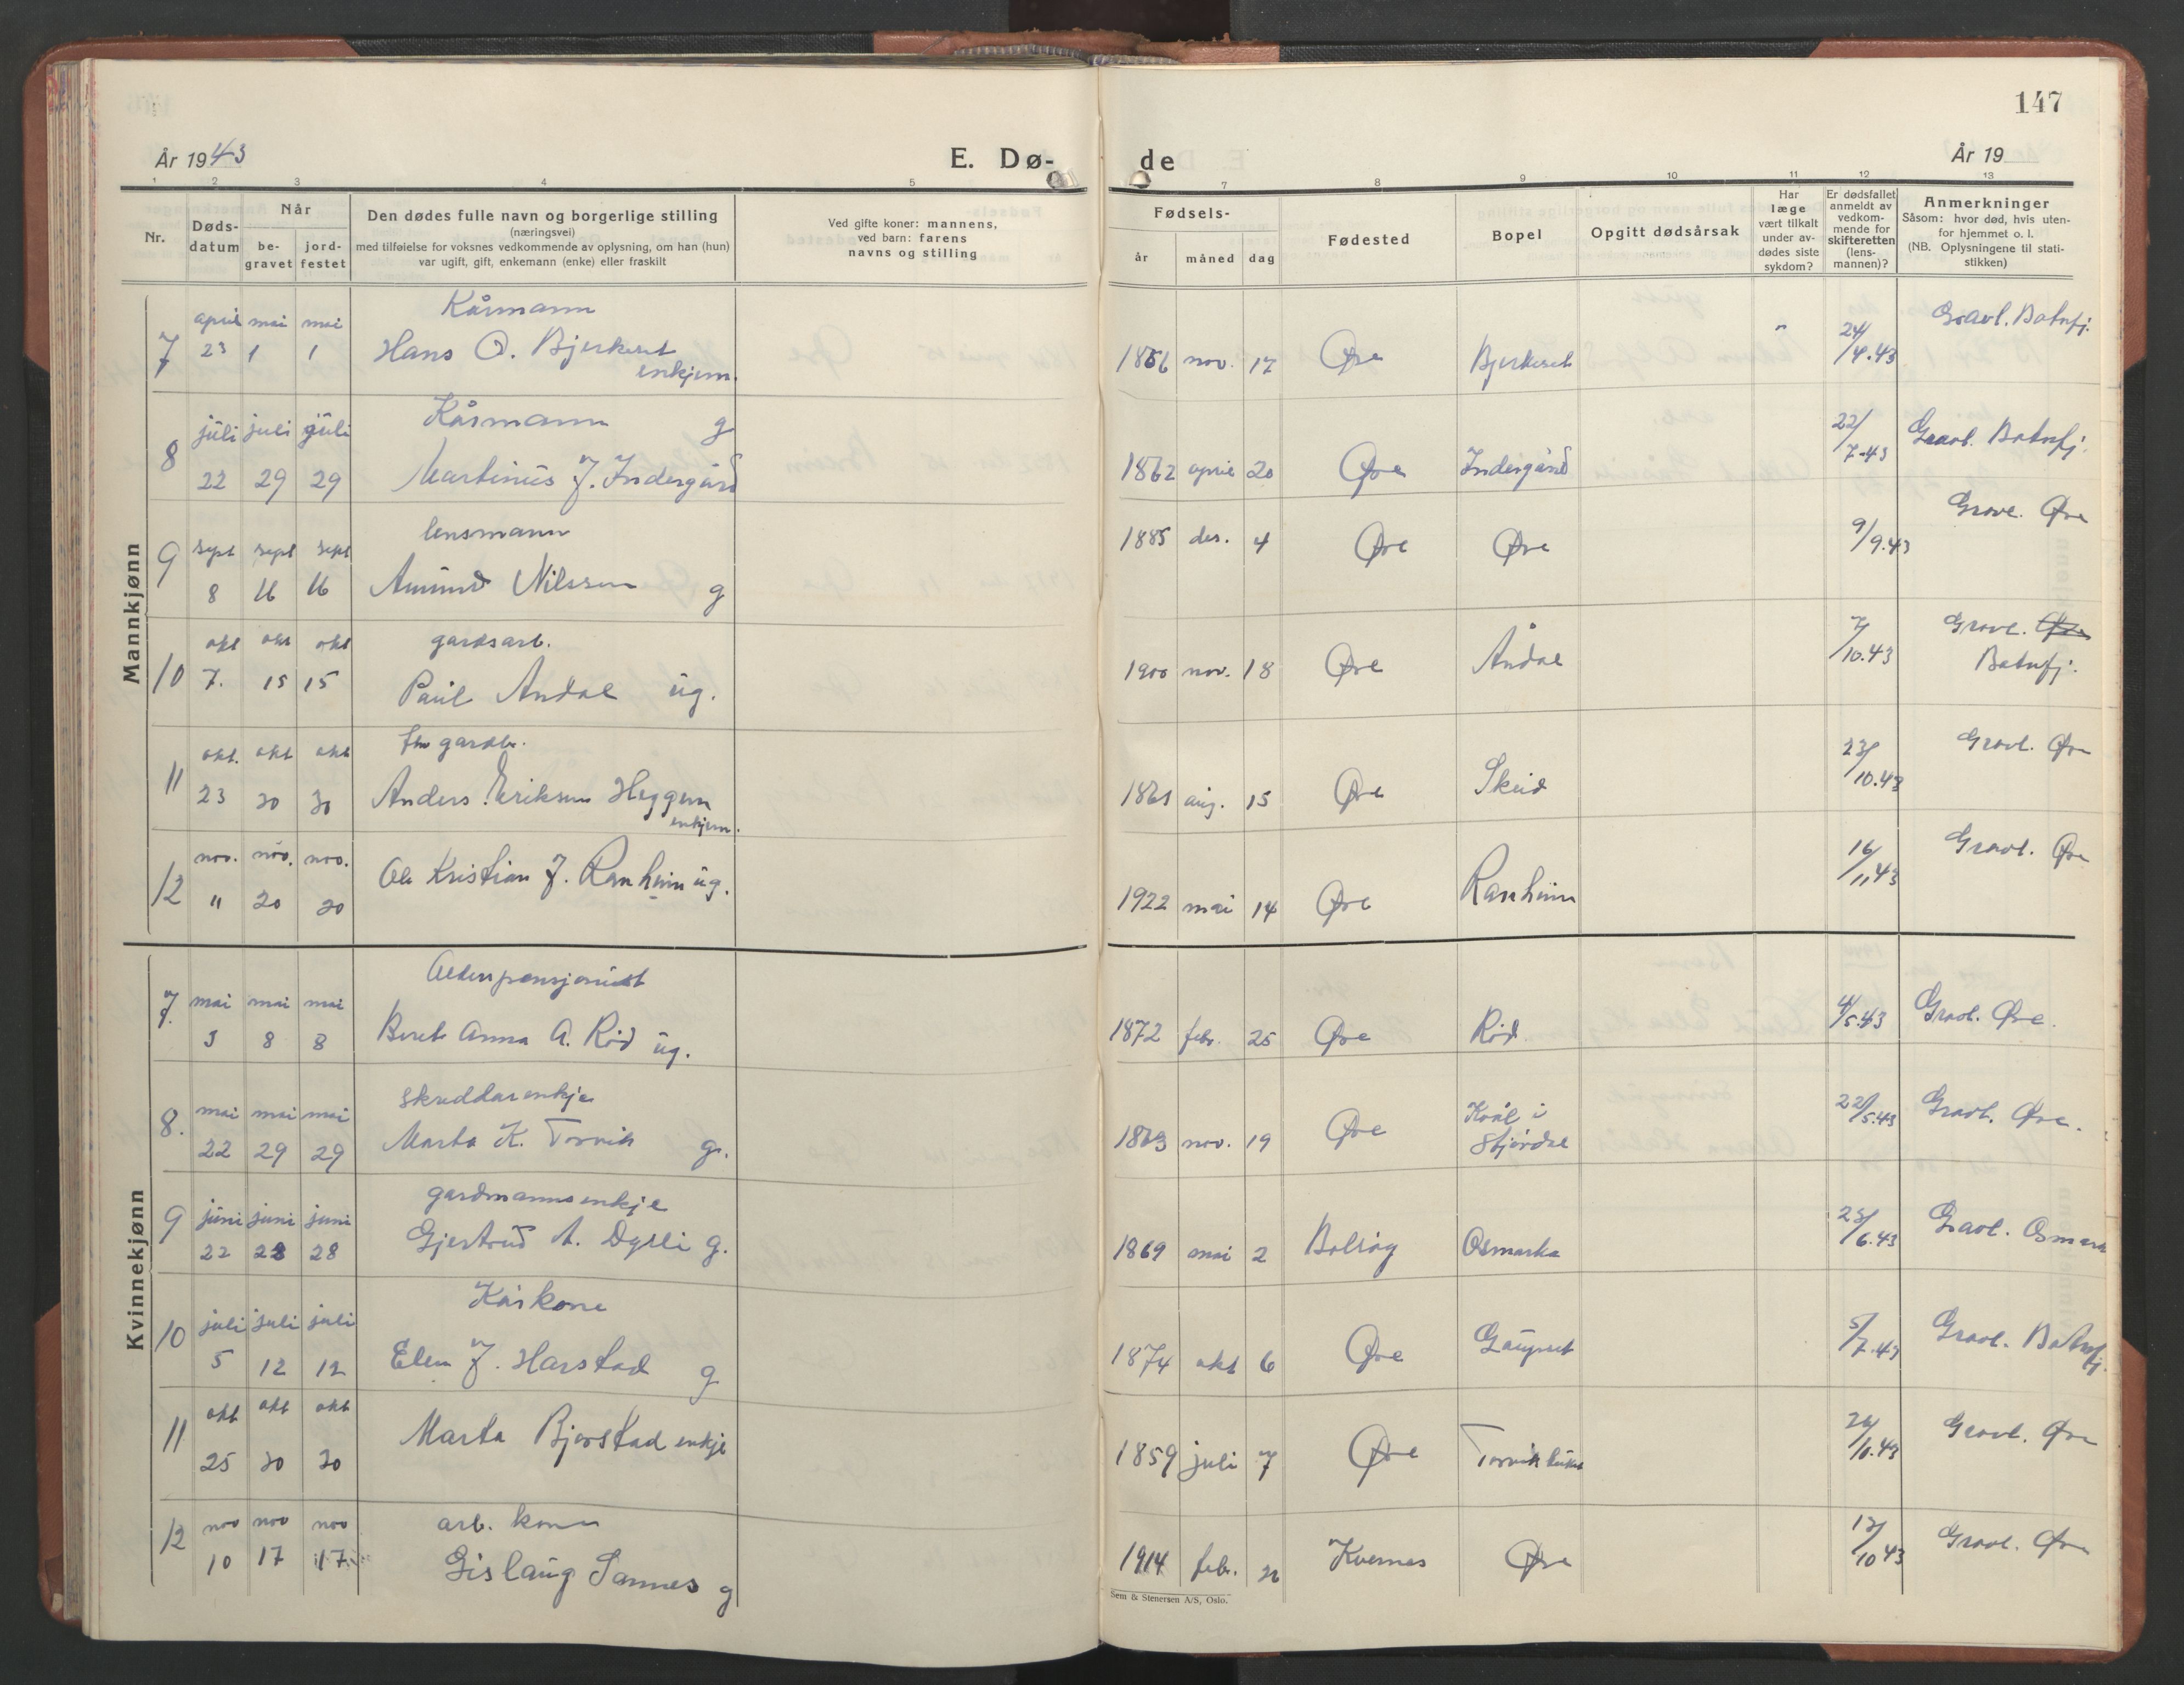 147
År 1943
E. Dø-
de
År 19
1 2 3 4 5 7 8 9 10 11 12 13
Nr.
Døds-
datum
Når
be-
gravet
jord-
festet
Den dødes fulle navn og borgerlige stilling
(næringsvei)
med tilføielse for voksnes vedkommende av oplysning, om han (hun)
var ugift, gift, enkemann (enke) eller fraskilt
Ved gifte koner: mannens,
ved barn: farens
navns og stilling
Fødsels-
år måned dag
Fødested
Bopel
Opgitt dødsårsak
Har
læge
vært tilkalt
under av-
dødes siste
sykdom?
Er dødsfallet
anmeldt av
vedkom-
mende for
skifteretten
(lens-
mannen)?
Anmerkninger
Såsom: hvor død, hvis uten-
for hjemmet o. l.
(NB. Oplysningene til stati-
stikken)
Mannkjønn
april mai mai Kårmann
7 23 1 1 Hans O. Bjerkeset
enkjem.
1866 nov. 17 Øre Bjerkeset " 24/4.43 Gravl. Batnfj.
juli juli juli Kårmann g
8 22 29 29 Martinus J. Indergård
1862 april 20 Øre Indergård 22/7-43 Gravl. Batnfj.
sept sept sept lensmann
9 8 16 16 Amund Nilssen g
1885 des. 4 Øre Øre 9/9.43 Gravl. Øre
okt okt okt gardsarb.
10 7. 15 15 Paul Andal ug.
1900 nov. 18 Øre Åndal 7/10.43 Gravl. Øre
Batnfj.
okt. okt okt fhv gardbr.
11 23 30 30 Anders Eriksen Heggem
enkjem.
1861 aug. 15 Øre Skeid 23/10.43 Gravl. Øre
nov. nov. nov.
12 11 20 20 Ole Kristian J. Ranheim ug.
1922 mai 14 Øre Ranheim 16/11 43 Gravl. Øre
Kvinnekjønn
mai mai mai Alderspensjonist
7. 3 8 8 Beret Anna A. Rød ug.
1872 febr. 25 Øre Rød 4/5.43 Gravl. Øre.
mai mai mai skreddarenkje
8. 22 29 29 Marta K. Torvik g.
1863 nov. 19 Øre Kvål i
Stjørdal 22/5.43 Gravl. Øre.
juni juni juni gardmannsenkje
9 22 28 28 Gjertrud A. Dyrli g.
1869 mai 2 Bolsøy Osmarka 25/6.43 Gravl. Osmark
juli juli juli Kårkone
10 5 12 12 Elen J. Harstad g
1874 okt 6 Øre Gaupset 5/7.43 Gravl. Batnfj.
okt okt okt
11 25 30 30 Marta Bjerstad enkje
1859 juli 7 Øre 26/10.43 Gravl. Øre
nov nov nov arb. kone
12 10 17 17 Gislaug Sannes g
1914 febr. Kvernes Øre 12/10 43 Gravl. Øre
Sem & Stenersen A/S, Oslo.